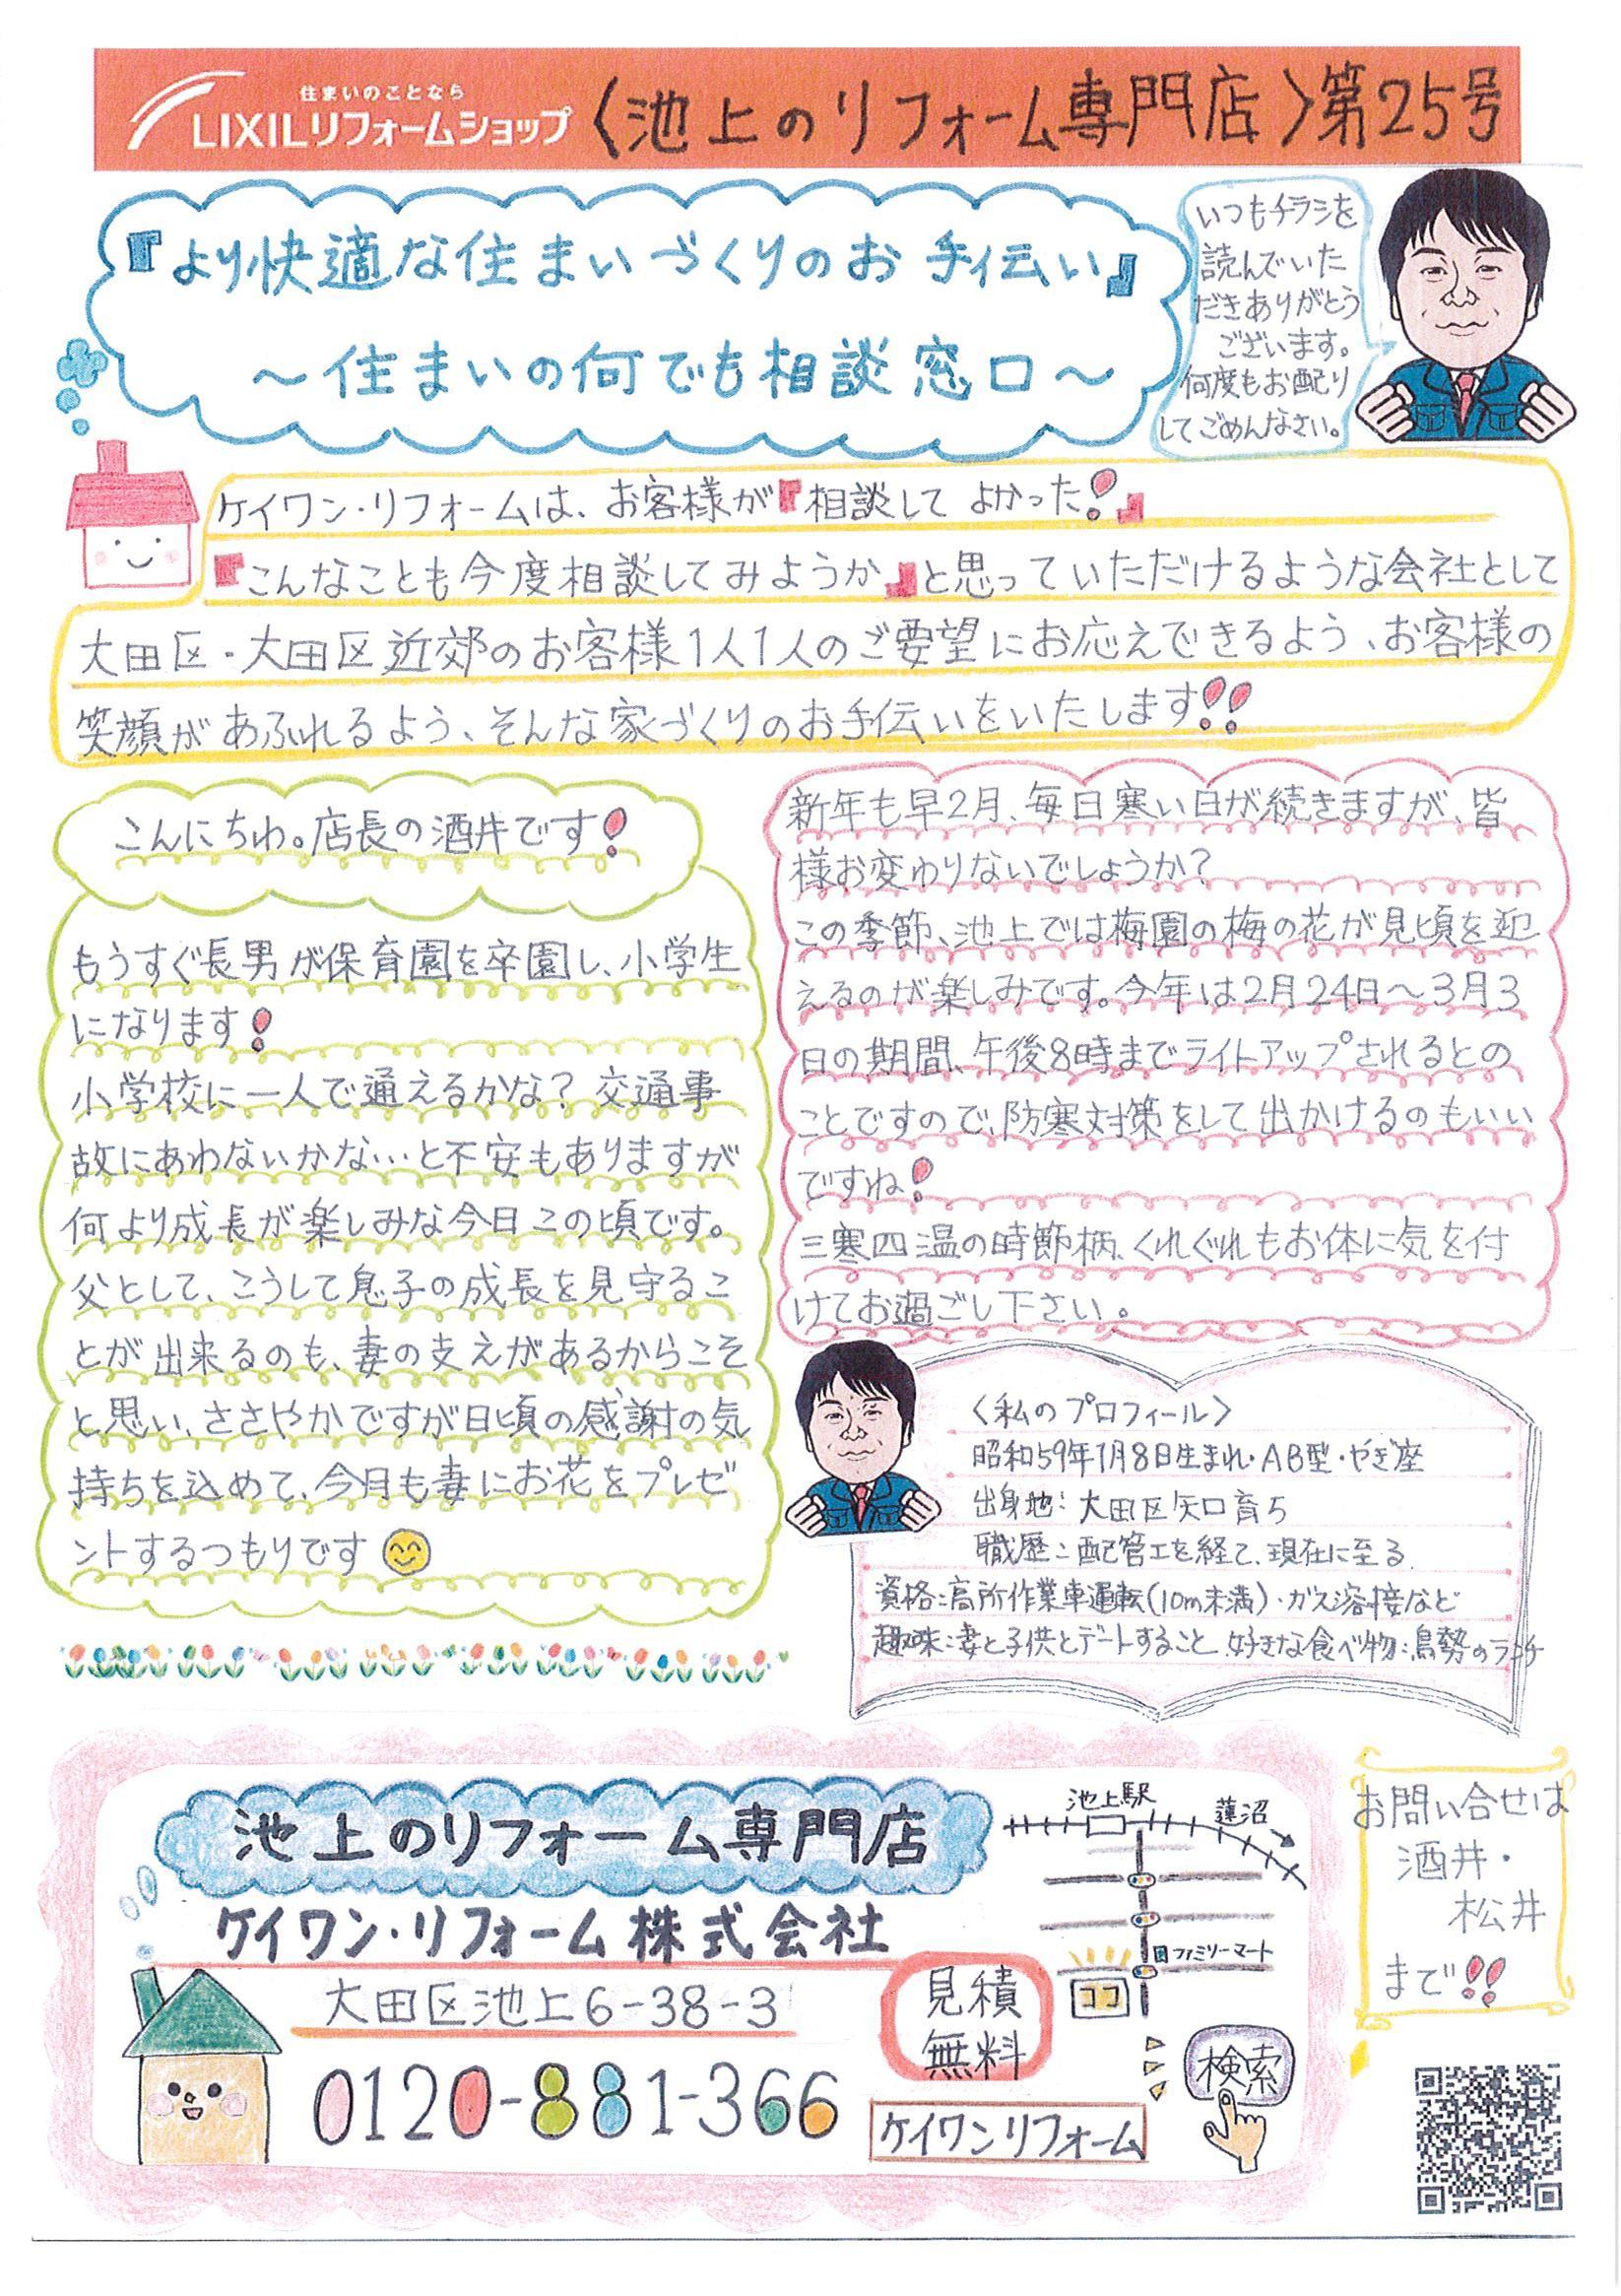 住まいのことなら
LIXILリフォームショップ〈池上のリフォーム専門店〉第25号
『より快適な住まいづくりのお手伝い』
～住まいの何でも相談窓口～
いつもチラシを
読んでいた
だきありがとう
ございます。
何度もお配り
してごめんなさい。
ケイワン・リフォームは、お客様が『相談して よかった!』
『こんなことも今度相談してみようか』と思っていただけるような会社として
大田区・大田区近郊のお客様1人1人のご要望にお応えできるよう、お客様の
笑顔があふれるよう、そんな家づくりのお手伝いをいたします!!
こんにちわ。店長の酒井です!
もうすぐ長男が保育園を卒園し、小学生
になります!
小学校に一人で通えるかな? 交通事
故にあわないかな…と不安もありますが
何より成長が楽しみな今日この頃です。
父として、こうして息子の成長を見守るこ
とが出来るのも、妻の支えがあるからこそ
と思い、ささやかですが日頃の感謝の気
持ちを込めて、今月も妻にお花をプレゼ
ントするつもりです
新年も早2月、毎日寒い日が続きますが、皆
様お変わりないでしょうか?
この季節、池上では梅園の梅の花が見頃を迎
えるのが楽しみです。今年は2月24日～3月3
日の期間、午後8時までライトアップされるとの
ことですので、防寒対策をして出かけるのもいい
ですね!
三寒四温の時節柄、くれぐれもお体に気を付
けてお過ごし下さい。
〈私のプロフィール〉
昭和59年1月8日生まれ・AB型・やぎ座
出身地:大田区矢口育ち
職歴:配管工を経て、現在に至る
資格:高所作業車運転(10m未満)・ガス溶接など
趣味:妻と子供とデートすること 好きな食べ物:鳥勢のランチ
池上のリフォーム専門店
ケイワン・リフォーム株式会社
大田区池上6-38-3
0120-881-366
見積
無料
ケイワンリフォーム
検索
池上駅
蓮沼
ファミリーマート
ココ
お問い合せは
酒井・
松井
まで!!